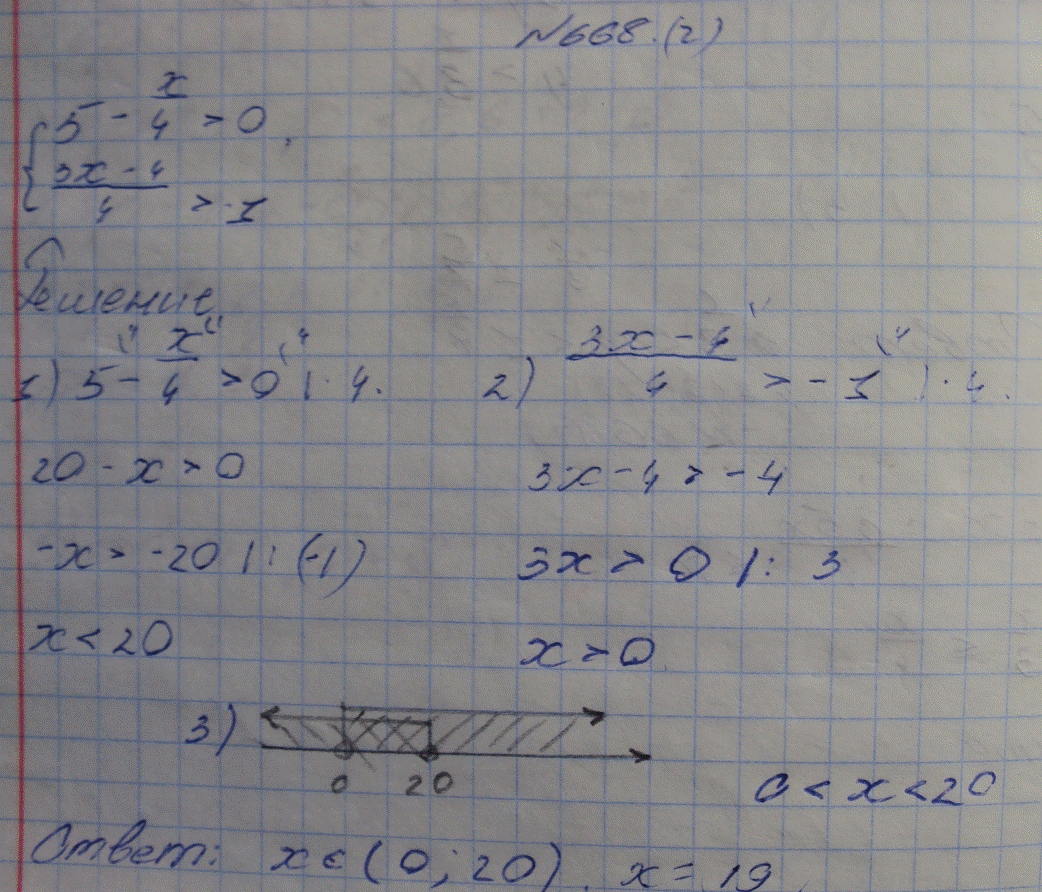 №668.(2)
{ 5 - x/4 > 0,
(3x - 4)/4 > -1
Решение
1) 5 - x/4 > 0 | · 4.
20 - x > 0
-x > -20 | : (-1)
x < 20
2) (3x - 4)/4 > -1 | · 4.
3x - 4 > -4
3x > 0 | : 3
x > 0
3)
0 20
0 < x < 20
Ответ: x ∈ (0; 20). x = 19.